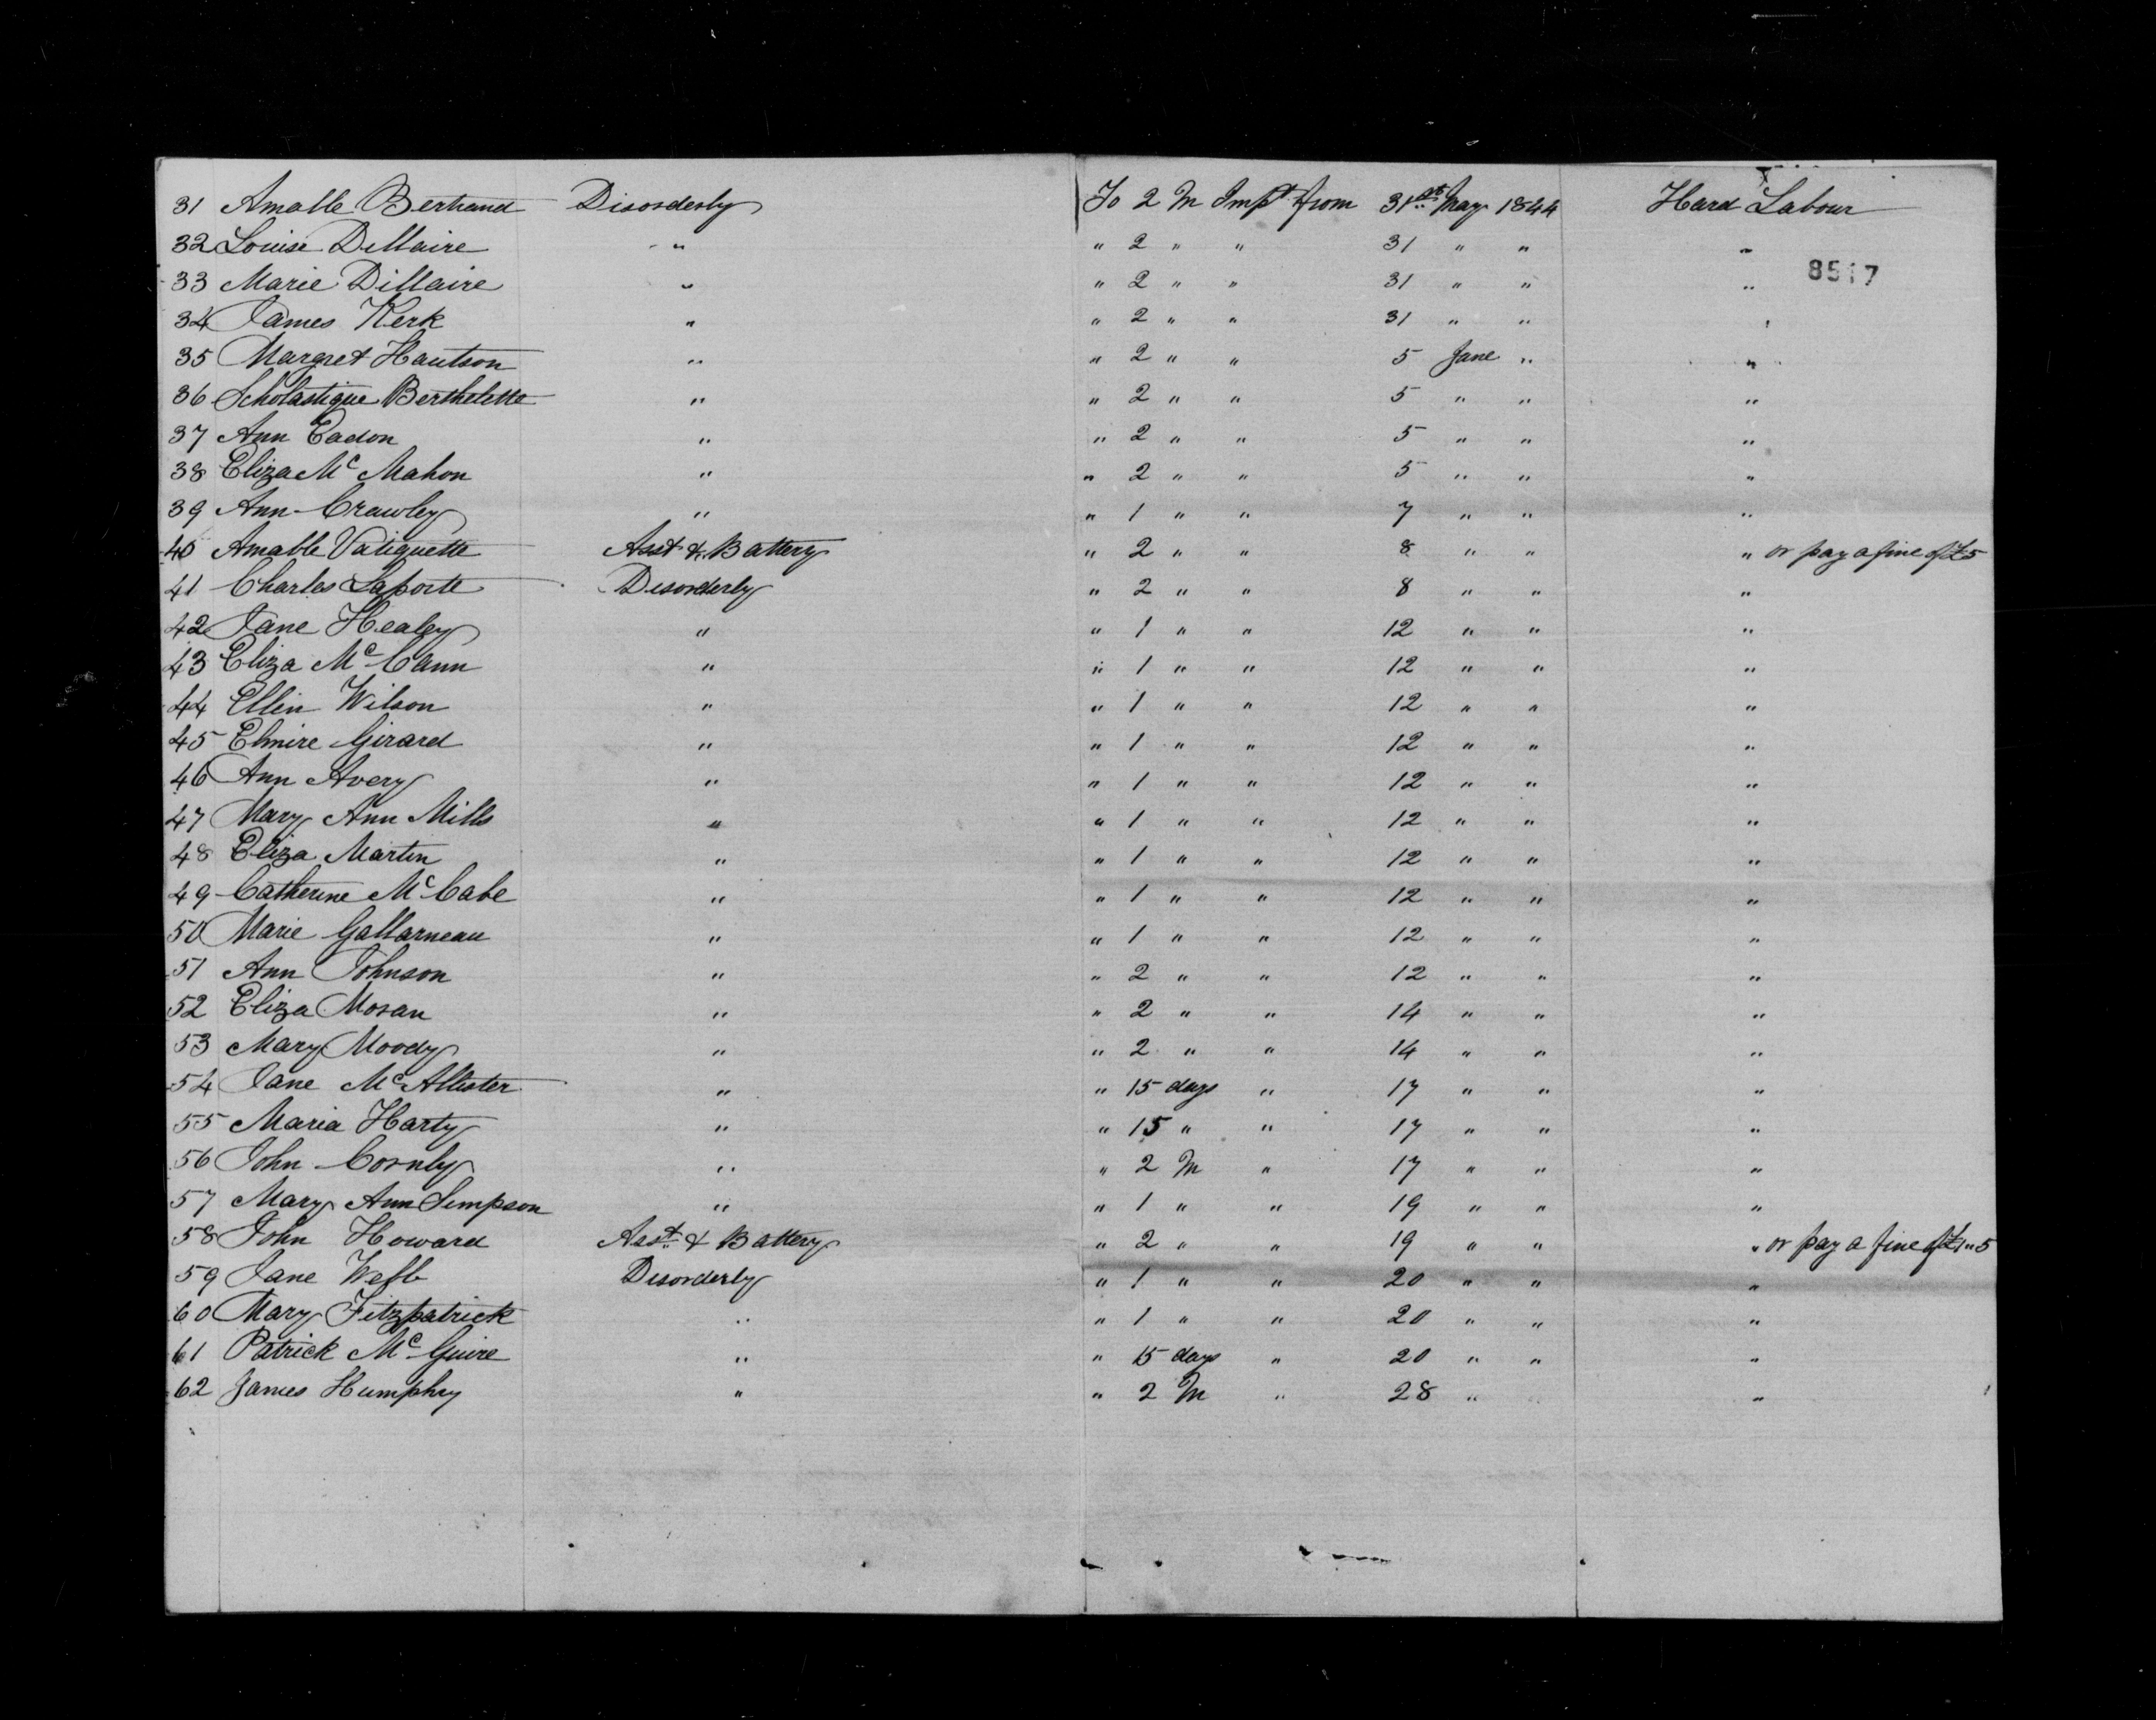 31 Amable Bertrand Disorderly To 2 M Impt from 31st May 1844 Hard Labour
32 Louise Dillaire " " 2 " " 31 " " "
8517
33 Marie Dillaire " " 2 " " 31 " " "
34 James Kerk " " 2 " " 31 " " "
35 Margret Hautson " " 2 " " 5 June " "
36 Scholastique Berthelette " " 2 " " 5 " " "
37 Ann Eadon " " 2 " " 5 " " "
38 Eliza Mc Mahon " " 2 " " 5 " " "
39 Ann Crawley " " 1 " " 7 " " "
40 Amable Valiquette Asst & Battery " 2 " " 8 " " " or pay a fine of £5
41 Charles Laporte Disorderly " 2 " " 8 " " "
42 Jane Healey " " 1 " " 12 " " "
43 Eliza Mc Cann " " 1 " " 12 " " "
44 Ellen Wilson " " 1 " " 12 " " "
45 Elmire Girard " " 1 " " 12 " " "
46 Ann Avery " " 1 " " 12 " " "
47 Mary Ann Mills " " 1 " " 12 " " "
48 Eliza Martin " " 1 " " 12 " " "
49 Catherine Mc Cabe " " 1 " " 12 " " "
50 Marie Gallarneau " " 1 " " 12 " " "
51 Ann Johnson " " 2 " " 12 " " "
52 Eliza Moran " " 2 " " 14 " " "
53 Mary Moody " " 2 " " 14 " " "
54 Jane McAllister " " 15 days " 17 " " "
55 Maria Harty " " 15 " " 17 " " "
56 John Cornly " " 2 M " 17 " " "
57 Mary Ann Simpson " " 1 " " 19 " " "
58 John Howard Asst & Battery " 2 " " 19 " " " or pay a fine of £1"5
59 Jane Webb Disorderly " 1 " " 20 " " "
60 Mary Fitzpatrick " " 1 " " 20 " " "
61 Patrick Mc Guire " " 15 days " 20 " " "
62 James Humphry " " 2 M " 28 " "